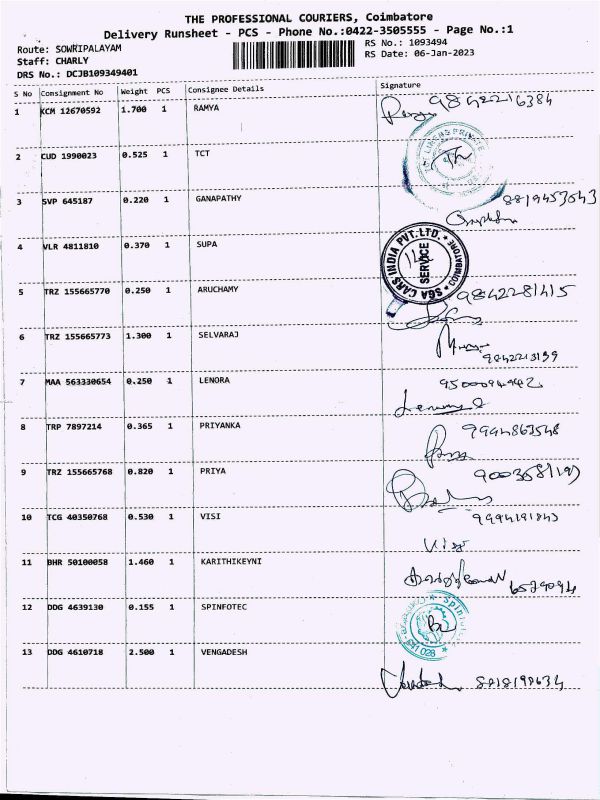 THE PROFESSIONAL COURIERS, Coimbatore
Delivery Runsheet - PCS - Phone No.:0422-3505555 - Page No.:1
Route: SOWRIPALAYAM
RS No.: 1093494
Staff: CHARLY
RS Date: 06-Jan-2023
DRS No.: DCJB109349401
S No Consignment No Weight PCS Consignee Details Signature
1 KCM 12670592 1.700 1 RAMYA 9842216384
2 CUD 1990023 0.525 1 TCT
3 SVP 645187 0.220 1 GANAPATHY 8819453543
4 VLR 4811810 0.370 1 SUPA SGA CARS INDIA PVT.LTD. * COIMBATORE * SERVICE
5 TRZ 155665770 0.250 1 ARUCHAMY 9842281415
6 TRZ 155665773 1.300 1 SELVARAJ 9842213199
7 MAA 563330654 0.250 1 LENORA 9500094942
8 TRP 7897214 0.365 1 PRIYANKA 9994863548
9 TRZ 155665768 0.820 1 PRIYA
10 TCG 40350768 0.530 1 VISI 9994191843
11 BHR 50100058 1.460 1 KARITHIKEYNI
12 DDG 4639130 0.155 1 SPINFOTEC
13 DDG 4610718 2.500 1 VENGADESH